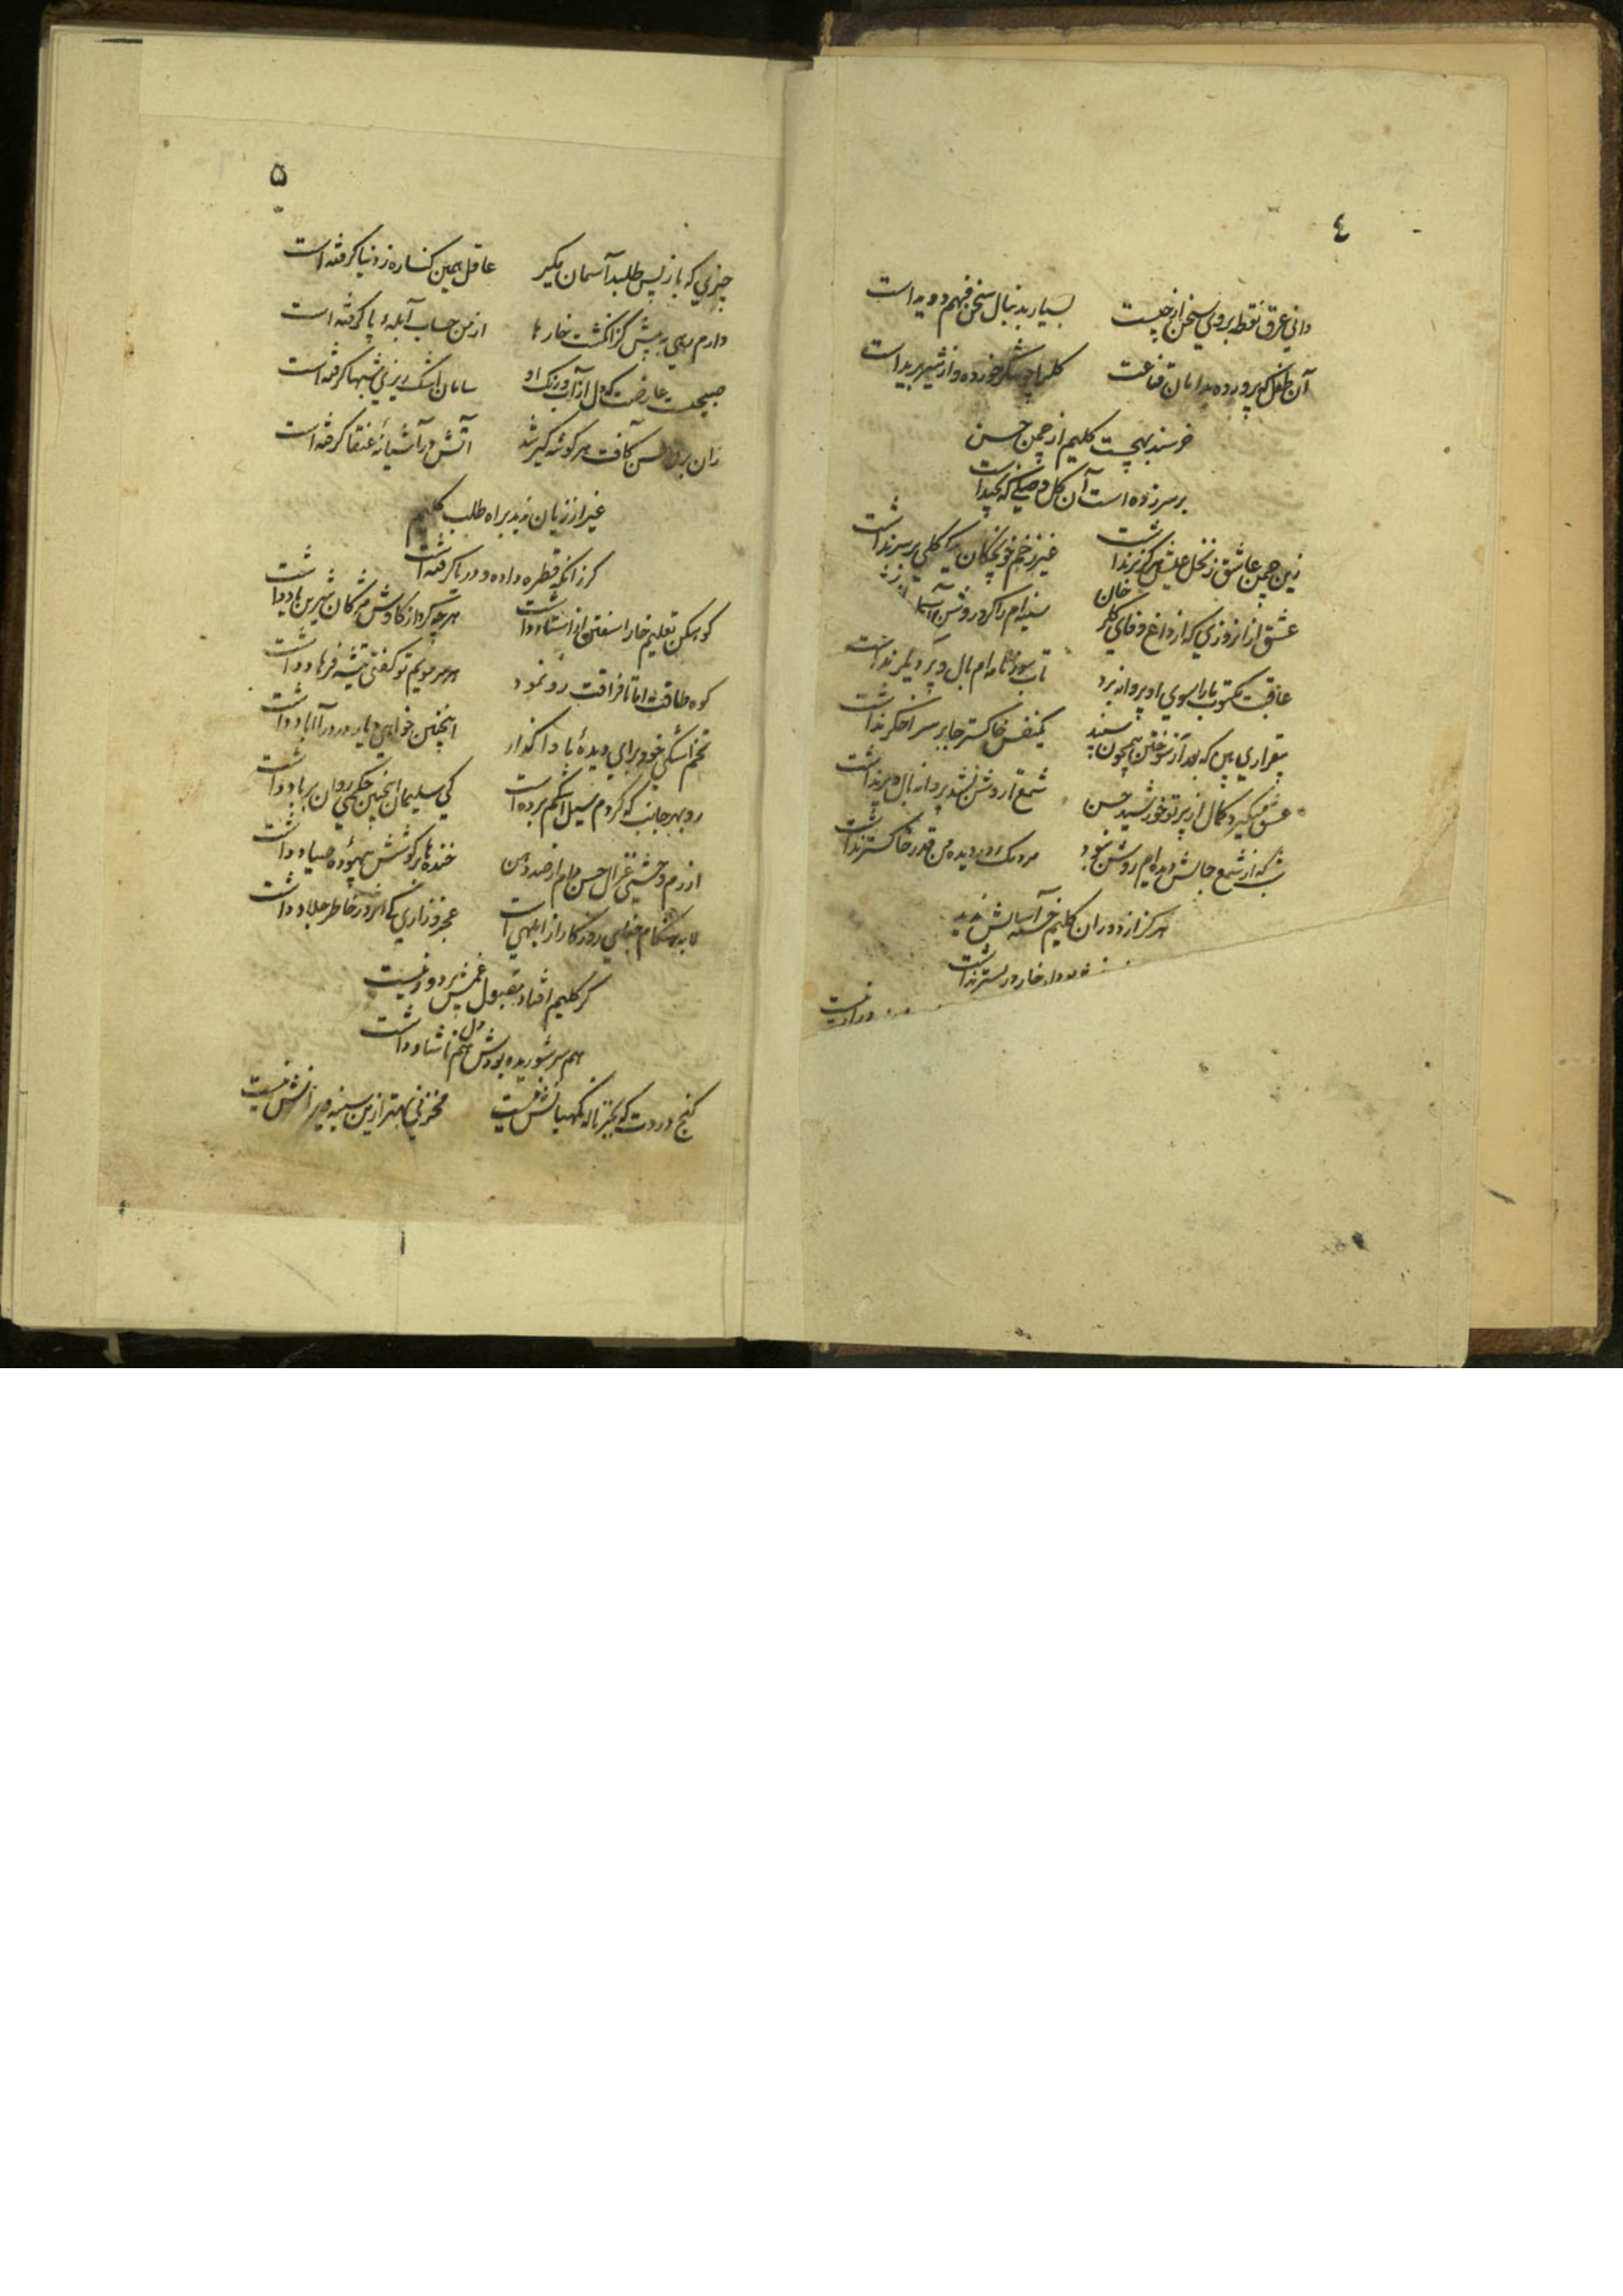 ٤
دانی عرق نقطه بروی سخن از چیست بسیار بدنبال سخن فهم دویداست
آن طفل که پرورده بدامان قناعت شکر خورده و از شیر بریداست
خرسند بهیچست کلیم از چمن حسن
بر سر زده است آن گل وصلی که نچیداست
زین چمن عاشق ز نخل عیش هرگز بر نداشت غیر زخم خونچکان یک گلی بر سر نداشت
عشق از انروزی که از داغ وفای گلرخان سینه ام را کرد روشن
عاقبت مکتوب ما را سوی او پروانه برد تاب سوز نامه ام بال و پر دیگر نداشت
بیقراری بین که بعد از سوختن همچون سپند یکنفس خاکستر جا بر سر اخگر نداشت
عشق میگیرد کمال از پرتو خورشید حسن شمع تا روشن نشد پروانه بال و پر نداشت
شب که از شمع جمالش دیده ام روشن نبود مردمک در دیده من قدر خاکستر نداشت
هرگز از دوران کلیم خسته آسایش ندید
خار در بستر نداشت
۵
چیزی که باز پس طلبد آسمان مگیر عاقل همین کناره ز دنیا گرفته است
دارم رهی به پیش کز انگشت خارها از من حساب آبله پا گرفته است
صبحیست عارضت که دل از آب و رنگ او سامان اشک ریزی شبها گرفته است
زان برق حسن کافت هر گوشه گیر شد آتش در آشیانه عنقا گرفته است
غیر از زیان ندید براه طلب کلیم
گر زانکه قطره داده و دریا گرفته است
کوهکن تعلیم خارا سفتن از استاد داشت هر چه کرد از کاوش مژگان شیرین یاد داشت
کوه طاقت اما تا فراقت رو نمود هر سر مویم تو گفتی تیشه فرهاد داشت
تخم اشکی خود برای دیده ما واگذار اینچنین خواهی دیار درد را آباد داشت
رو بهر جانب که کردم سیل اشکم برده است کی سلیمان اینچنین حکمی روان بر باد داشت
از رم وحشی غزال حسن رام از صد دهن خنده ها بر کوشش بیهوده صیاد داشت
لابه هنگام جفای روزگار از ابلهی است عجز و زاری کی اثر در خاطر جلاد داشت
گر کلیم افتاد مقبول غمش پر دور نیست
هم سر شوریده بودش هم دل ناشاد داشت
گنج دردت که بجز ناله نگهبانش نیست مخزنی بهتر ازین سینه ویرانش نیست